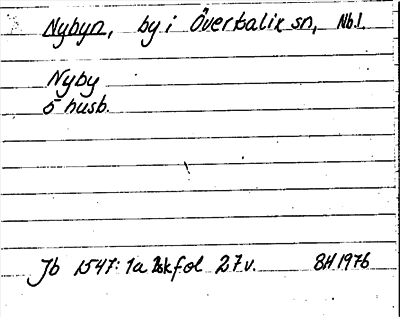 Nybyn, by i Överkalix sn, Nbl.
Nyby
5 husb.
Jb 1547: 1a bskfol 27v. BH 1976